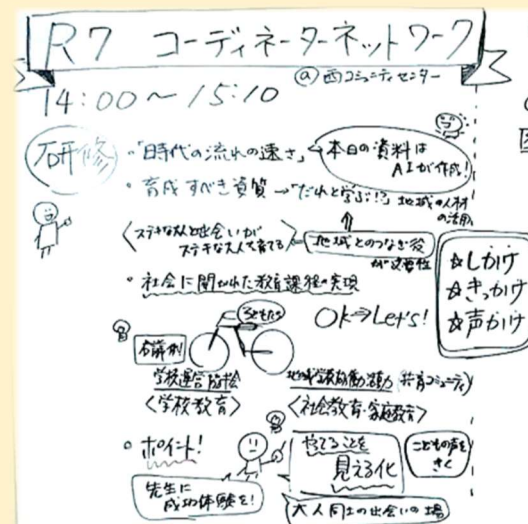 R7 コーディネーターネットワーク
@西コミュニティセンター
14:00～15:10
研修
・「時代の流れの速さ」
本日の資料は
AIが作成!
・育成すべき資質→「だれと学ぶ!?
地域の人材
の活用
〈ステキな大人と出会いが
ステキな大人を育てる〉
地域とのつなぎ役
が必要性
・社会に開かれた教育課程の実現
☆しかけ
☆きっかけ
☆声かけ
OK→Let's!
子どもたち
両輪
学校運営協議会
〈学校教育〉
地域学校協働活動
〈社会教育・家庭教育〉
・ポイント!
先生に
成功体験を!
やってることを
見える化
こどもの声を
きく
大人同士の出会いの場